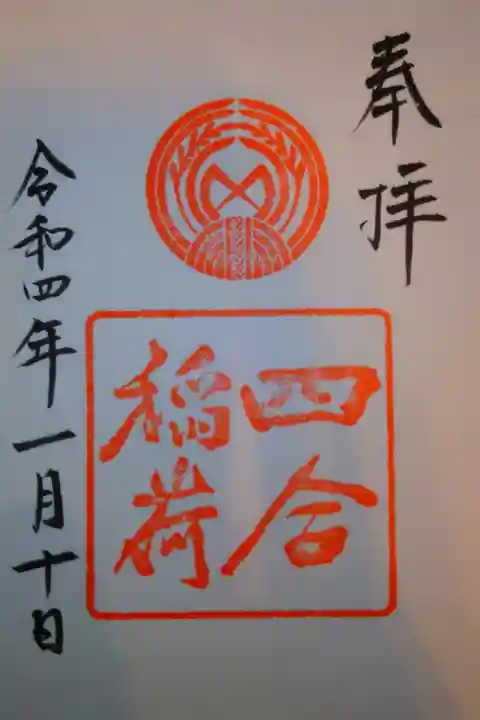 奉拝
四合
稲荷
令和四年一月十日